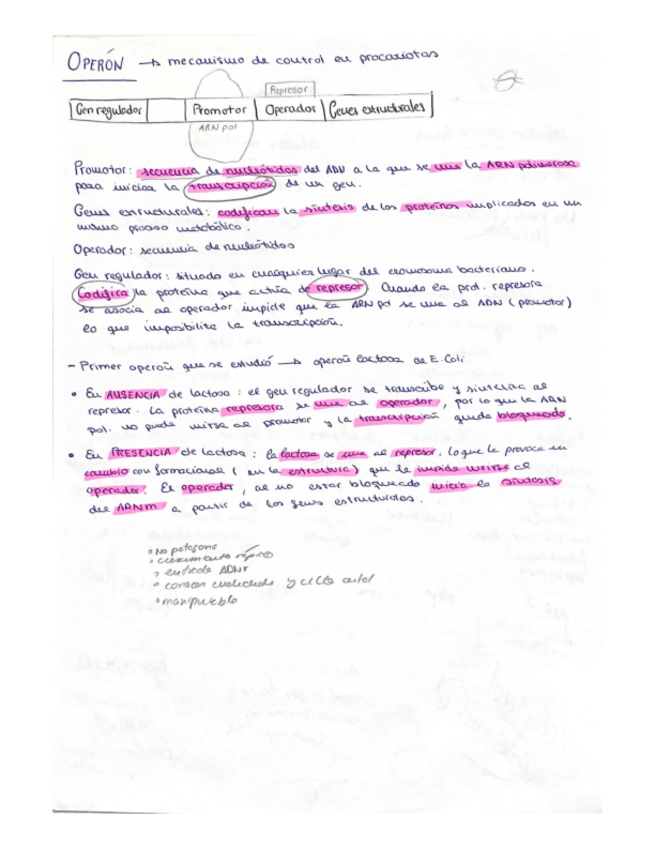 OPERÓN → mecanismo de control en procariotas
Represor
Gen regulador Promotor Operador Genes estructurales
ARN pol
Promotor: secuencia de nucleótidos del ADN a la que se une la ARN polimerasa
para iniciar la transcripción de un gen.
Genes estructurales: codifican la síntesis de las proteínas implicadas en un
mismo proceso metabólico.
Operador: secuencia de nucleótidos
Gen regulador: situado en cualquier lugar del cromosoma bacteriano.
Codifica la proteína que actúa de represor. Cuando la prot. represora
se asocia al operador impide que la ARN pol se una al ADN (promotor)
lo que imposibilita la transcripción.
- Primer operón que se estudió → operón lactosa de E.Coli.
• En AUSENCIA de lactosa: el gen regulador se transcribe y sintetiza al
represor. La proteína represora se une al operador, por lo que la ARN
pol. no puede unirse al promotor y la transcripción queda bloqueada.
• En PRESENCIA de lactosa: la lactosa se une al represor, lo que le provoca un
cambio conformacional (en la estructura) que le impide unirse al
operador. El operador, al no estar bloqueado inicia la síntesis
del ARNm a partir de los genes estructurales.
• No patógeno
• crecimiento rápido
• ADN
• y ciclo
• manipueblo